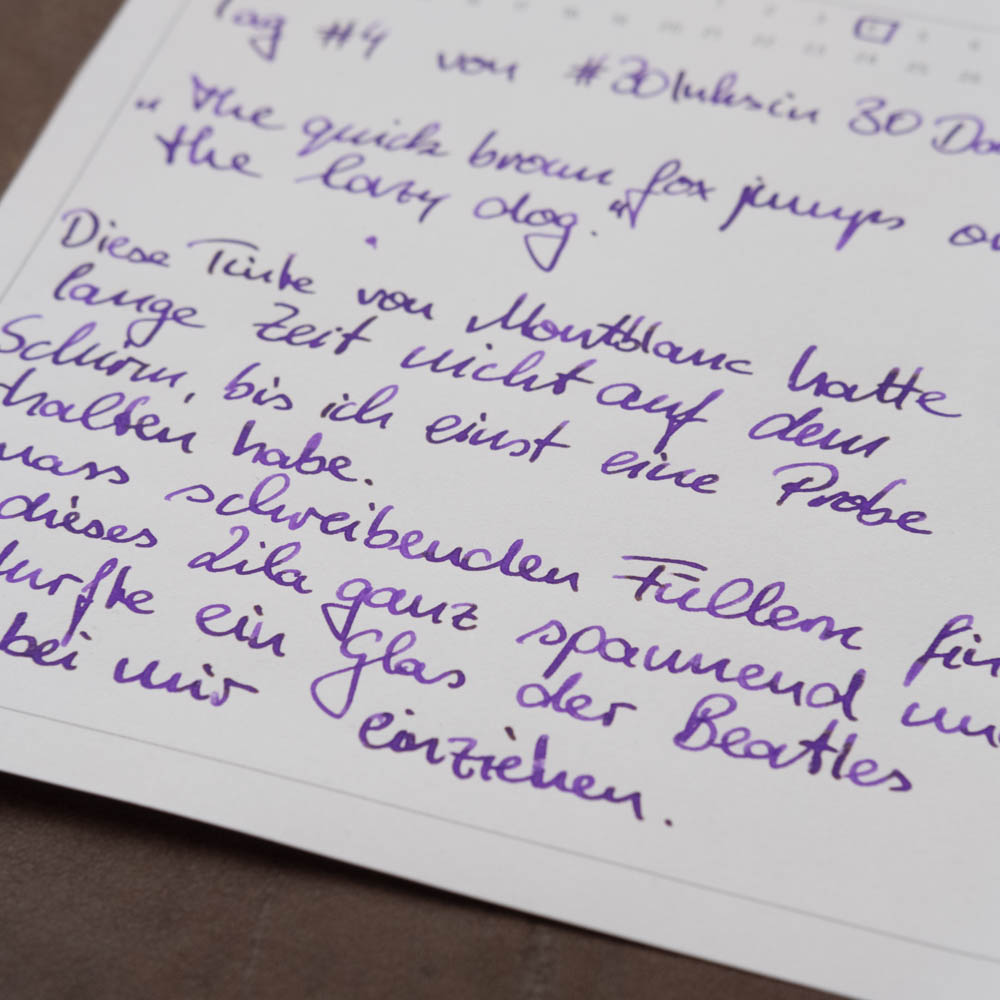 Tag #4 von #30Inksin 30 Da
„the quick brown fox jumps ov
the lazy dog."
Diese Tinte von Montblanc hatte
lange Zeit nicht auf dem
Schirm, bis ich einst eine Probe
rhalten habe.
nass schreibenden Füllern fin
dieses Lila ganz spannend un
durfte ein Glas der Beatles
bei mir einziehen.